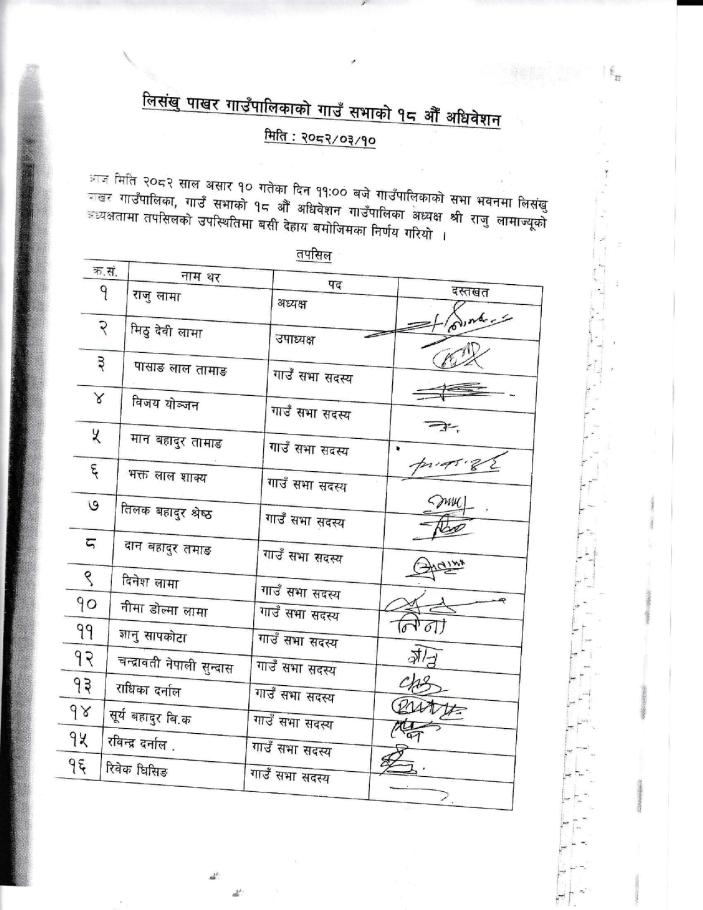 लिसंखु पाखर गाउँपालिकाको गाउँ सभाको १८ औँ अधिवेशन
मिति : २०८२/०३/१०
आज मिति २०८२ साल असार १० गतेका दिन ११:०० बजे गाउँपालिकाको सभा भवनमा लिसंखु
पाखर गाउँपालिका, गाउँ सभाको १८ औँ अधिवेशन गाउँपालिका अध्यक्ष श्री राजु लामाज्यूको
अध्यक्षतामा तपसिलको उपस्थितिमा बसी देहाय बमोजिमका निर्णय गरियो ।
तपसिल
क्र.सं. नाम थर पद दस्तखत
१ राजु लामा अध्यक्ष
२ मिठु देवी लामा उपाध्यक्ष
३ पासाङ लाल तामाङ गाउँ सभा सदस्य
४ विजय योञ्जन गाउँ सभा सदस्य
५ मान बहादुर तामाङ गाउँ सभा सदस्य
६ भक्त लाल शाक्य गाउँ सभा सदस्य
७ तिलक बहादुर श्रेष्ठ गाउँ सभा सदस्य
८ दान बहादुर तमाङ गाउँ सभा सदस्य
९ दिनेश लामा गाउँ सभा सदस्य
१० नीमा डोल्मा लामा गाउँ सभा सदस्य
११ ज्ञानु सापकोटा गाउँ सभा सदस्य
१२ चन्द्रावती नेपाली सुन्दास गाउँ सभा सदस्य
१३ राधिका दर्नाल गाउँ सभा सदस्य
१४ सूर्य बहादुर बि.क गाउँ सभा सदस्य
१५ रविन्द्र दर्नाल . गाउँ सभा सदस्य
१६ रिवेक घिसिङ गाउँ सभा सदस्य